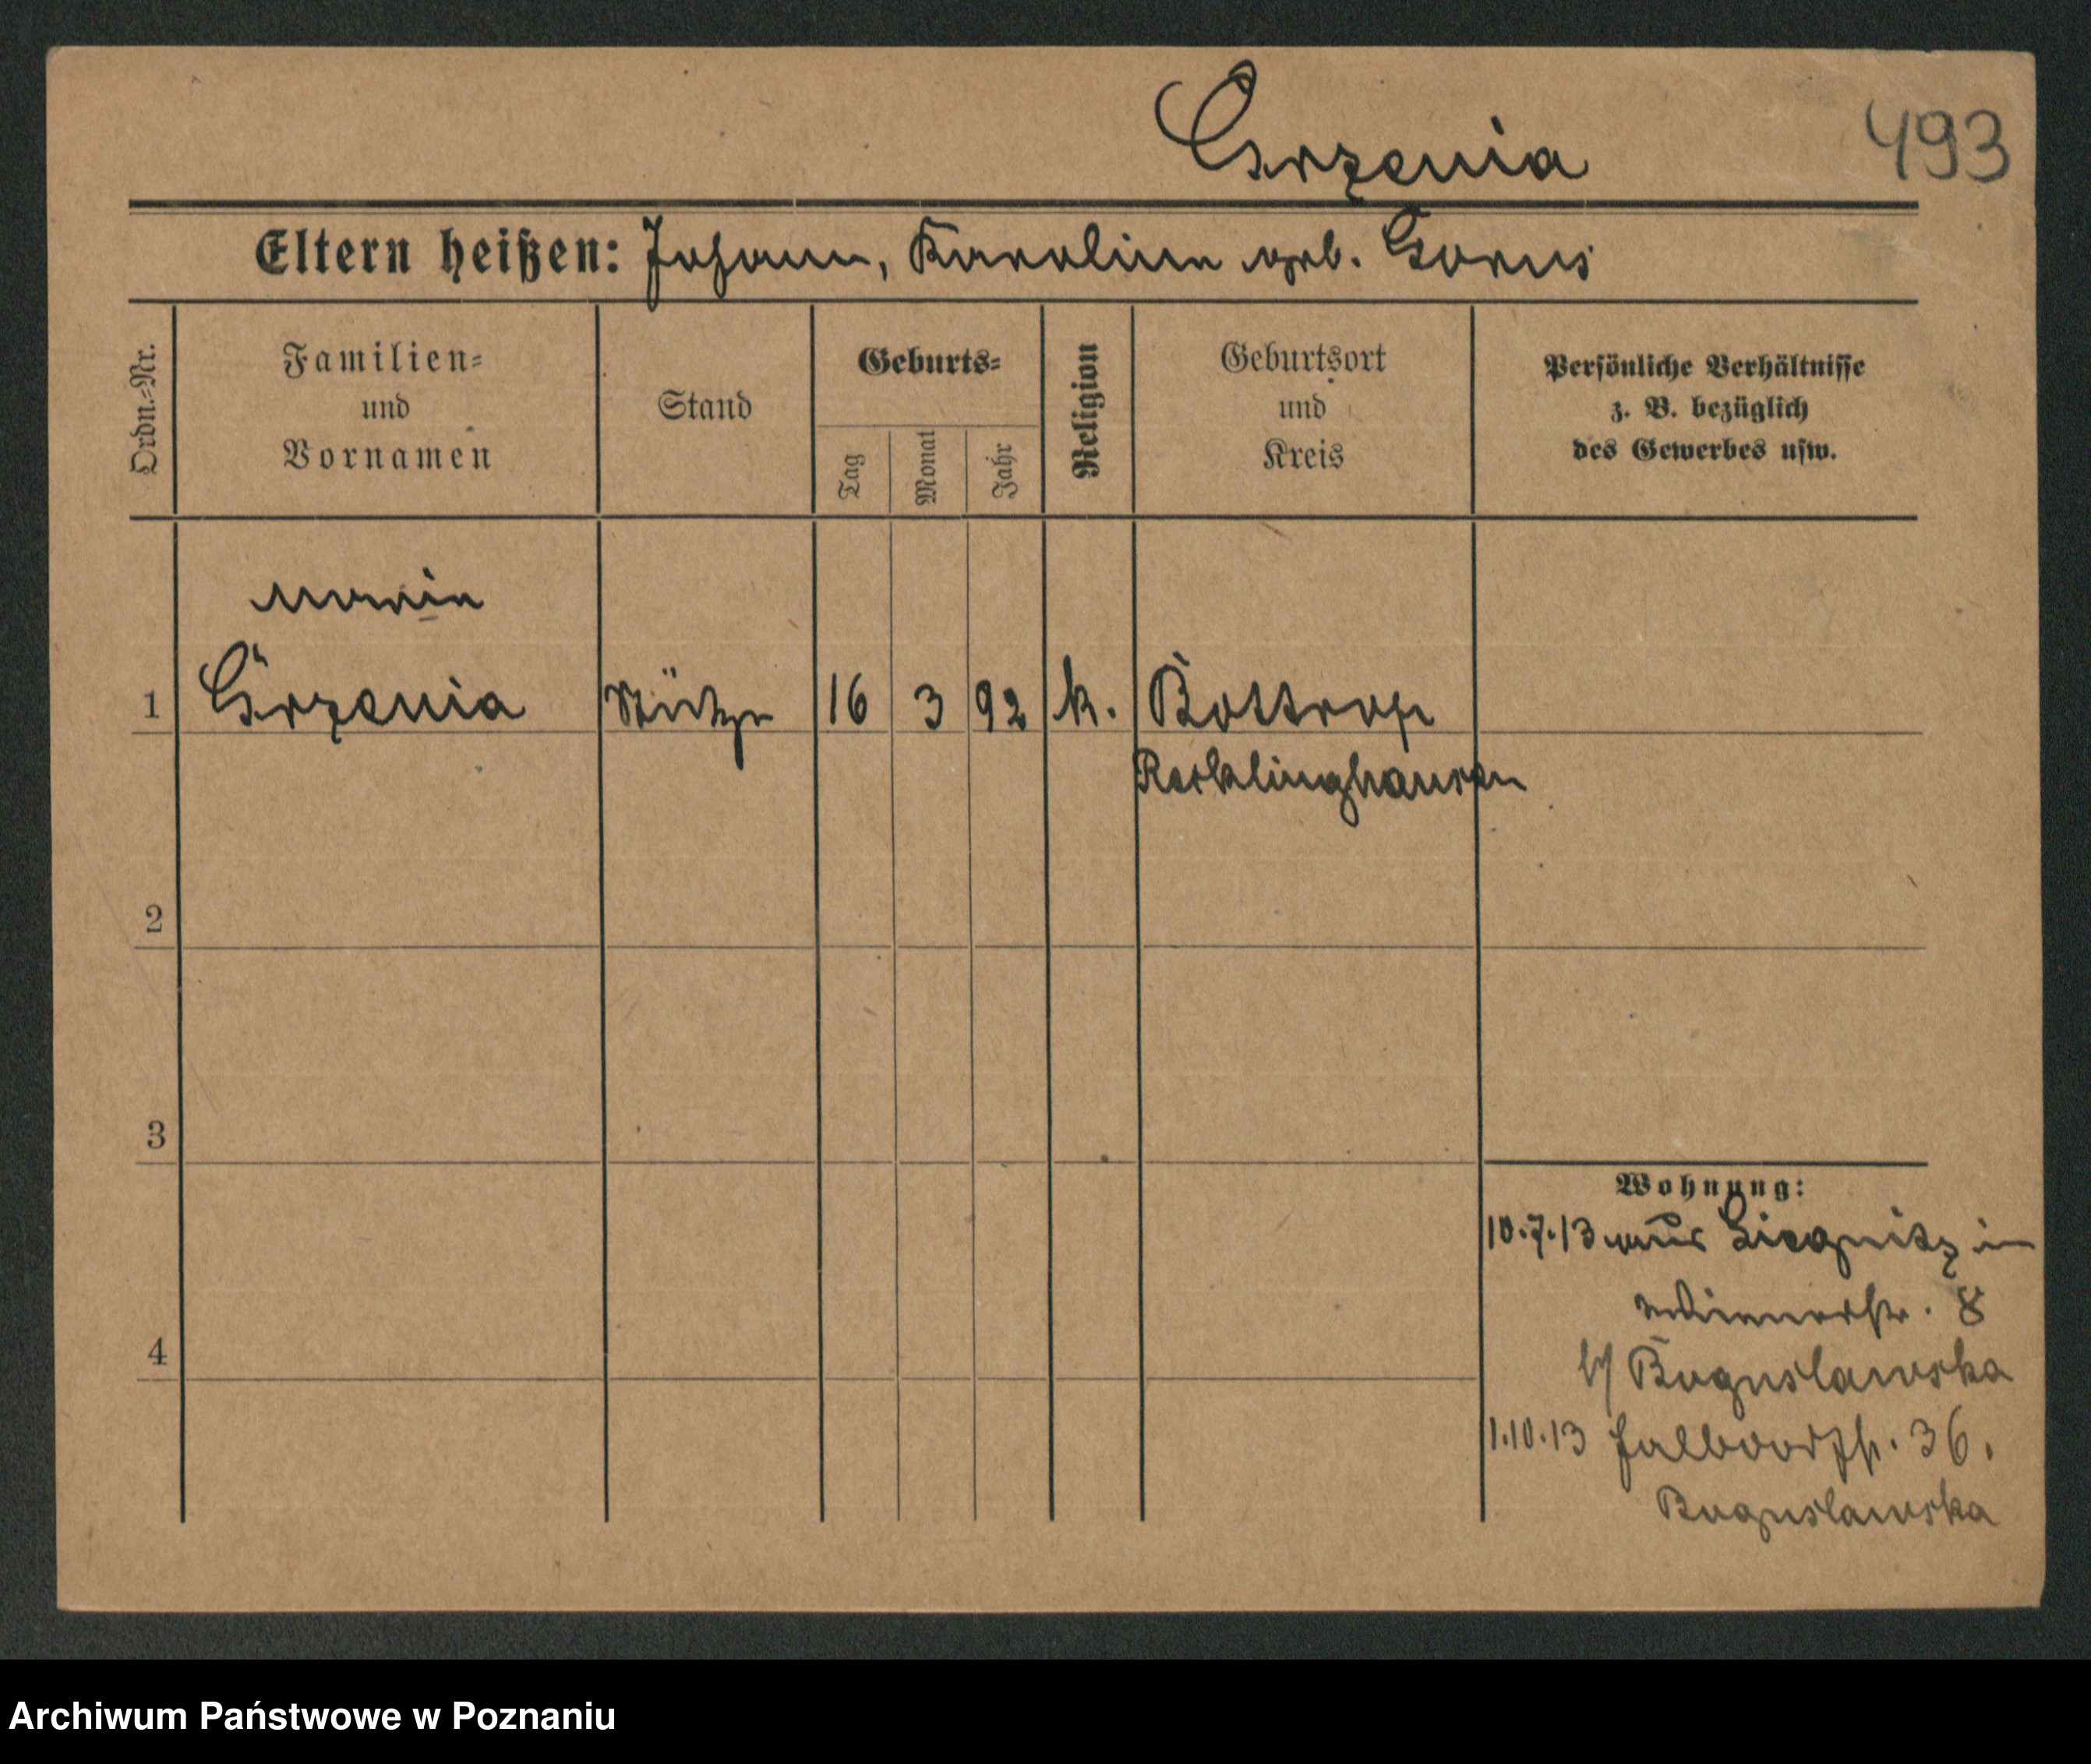 Gsrzenia 493
Eltern heißen: Johann, Karolina geb. Gorus
Ordn.=Nr.
Familien=
und
Vornamen
Stand
Geburts=
Tag
Monat
Jahr
Religion
Geburtsort
und
Kreis
Persönliche Verhältnisse
z. B. bezüglich
des Gewerbes usw.
Maria
1 Gsrzenia Stütze 16 3 92 k. Bottrop
Recklinghausen
2
3
4
Wohnung:
10.7.13 aus Liegnitz in
8
b/ Boguslawska
1.10.13 Halbdorfstr. 36.
Boguslawska
Archiwum Państwowe w Poznaniu